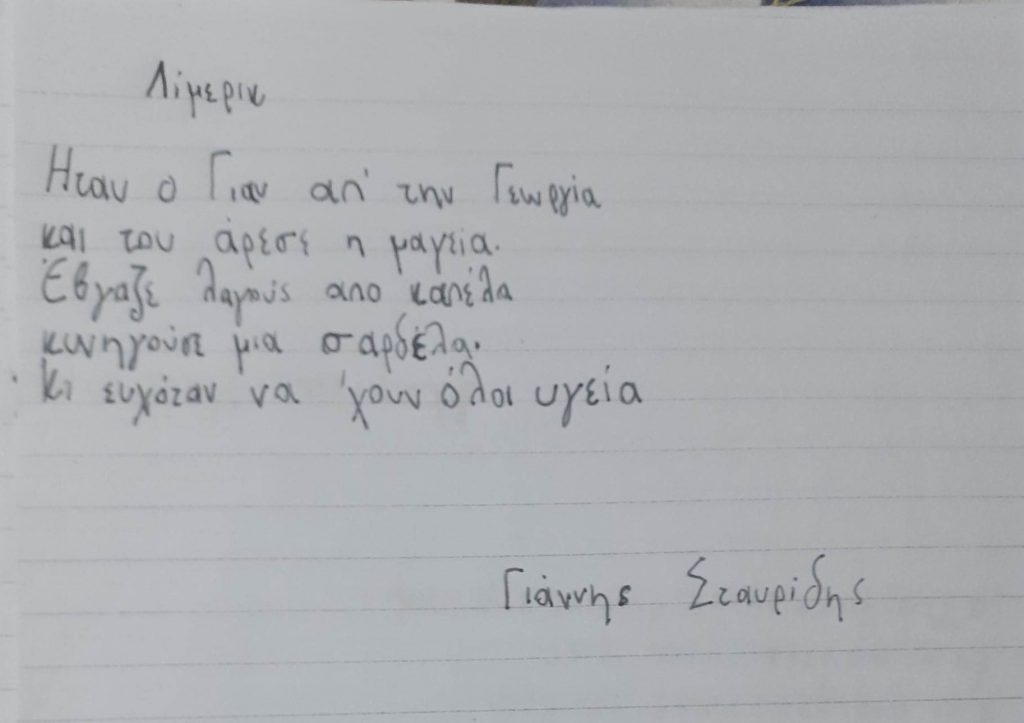 Λίμερικ
Ηταν ο Γιαν απ' την Γεωργία
και του άρεσε η μαγεία.
Έβγαζε λαγούς απο καπέλα
κυνηγούσε μια σαρδέλα.
Κι ευχόταν να 'χουν όλοι υγεία
Γιάννης Σταυρίδης